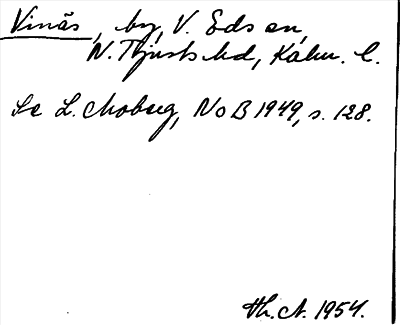 Vinäs, by, V. Eds sn,
N. Tjusts hd, Kalm. l.
Se L. Moberg, NoB 1949, s. 128.
Th. A. 1954.